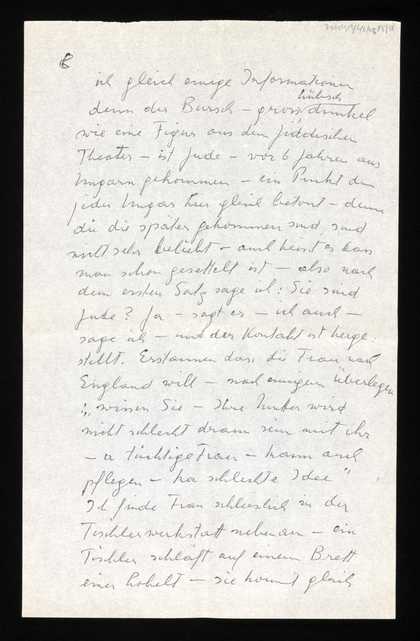 8
ich gleich einige Informationen
hübsch
denn der Bursch – gross, dunkel
wie eine Figur aus dem jiddischen
Theater – ist Jude – vor 6 Jahren aus
Ungarn gekommen – ein Punkt den
jeder Ungar hier gleich betont – denn
die die später gekommen sind, sind
nicht sehr beliebt – auch heisst es dass
man schon gesettelt ist – also nach
dem ersten Satz sage ich: Sie sind
Jude? Ja – sagt er – ich auch –
sage ich – und der Kontakt ist herge-
stellt. Erstaunen dass die Frau nach
England will – nach einigem überlegen
: „wissen Sie – Ihre Mutter wird
nicht schlecht dran sein mit ihr
– a tüchtige Frau – kann auch
pflegen – ka schlechte Idee"
Ich finde Frau schliesslich in der
Tischlerwerkstatt nebenan – ein
Tischler schläft auf einem Brett
einer Hobelt – sie kommt gleich